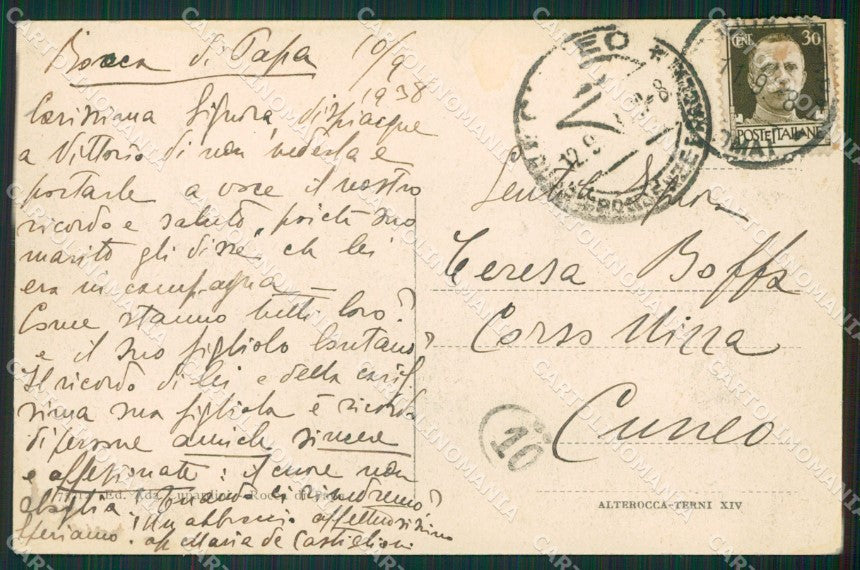 Rocca di Papa 10/9
1938
Carissima Signora, dispiacque
a Vittorio di non vederla e
portarle a voce il nostro
ricordo e saluto, poiché suo
marito gli disse che lei
era in campagna
Come stanno tutti loro?
e il suo figliolo lontano?
Il ricordo di lei e della caris
sima sua figliola è ricordo
di persone amiche sincere
e affezionate: il cuore non
sbaglia! Quando ci rivedremo?
Speriamo. Un abbraccio affettuosissimo
Maria de Castiglioni
Ed. Rocca di Papa
CENT. 30
POSTE ITALIANE
CUNEO
12.9
38
ROMA
Gentile Signora
Teresa Boffa
Corso Nizza
Cuneo
10
ALTEROCCA-TERNI XIV
CARTOLINOMANIA